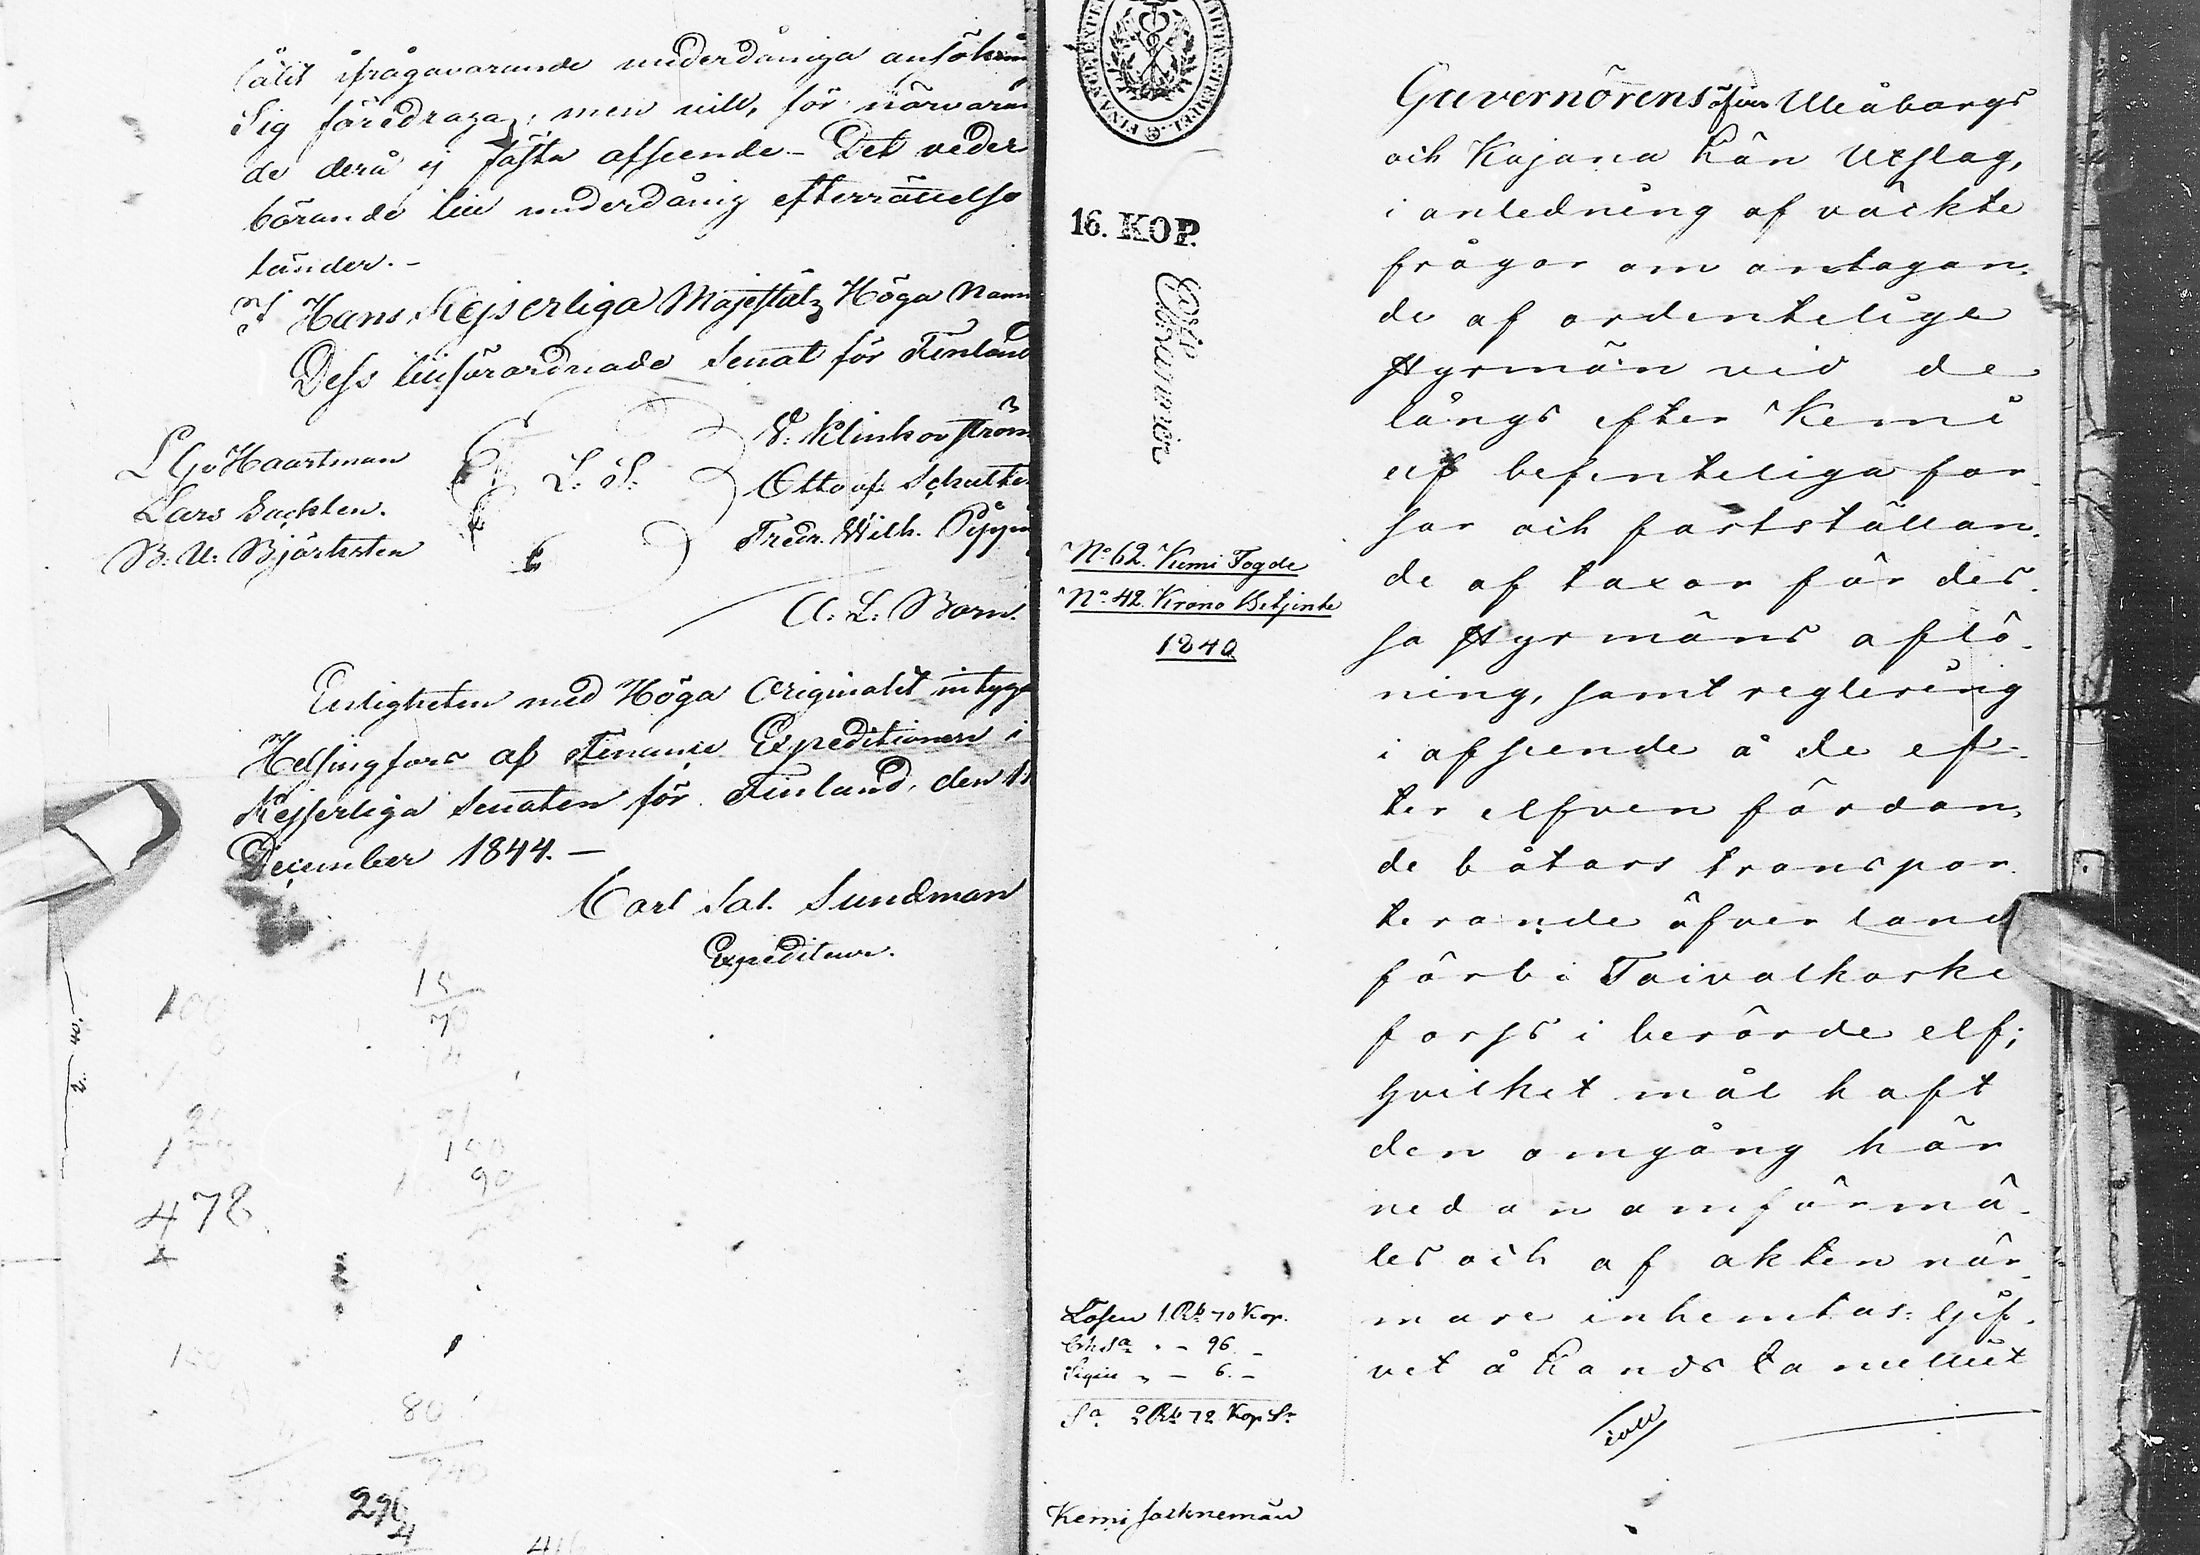 låtit ifrågavarande underdåniga ansökning
Sig föredragas; men vill, för närvaran
de derå ej fästa afseende. Det veder
börande till underdånig efterrättelse
länder.
I Hans Kejserliga Majestäts Höga Namn
Dess tillförordnade Senat för Finland
L G v Haartman
Lars Sackleen.
B. U. Björksten
L. S.
V. Klinkowström
Otto af Schultén
Fredr. Wilh. Pipping
A. L. Born.
Enligheten med Höga Originalet intyga
Helsingfors af Finance Expeditionen i
Kejserliga Senaten för Finland, den 11
December 1844.
Carl Sal. Sundman
Expediteur.
100
15
70
150
90
478
80
296
4
16. KOP.
No 62. Kemi Fogde
No 42. Krono Betjente
1840
Lösen 1 Rb 70 Kop.
Ch Sa " - 96 -
Sigill " - 6. -
Sa 2 Rb 72 Kop Sr
Kemi Socknemän
Guvernörens öfver Uleåborgs
och Kajana Län Utslag,
i anledning af väckte
frågor om antagan-
de af ordentelige
styrmän vid de
långs efter Kemi
elf befinteliga for-
sar och fastställan-
de af taxor för des-
sa styrmäns aflö-
ning, samt reglering
i afseende å de ef-
ter elfven fördan-
de båtars transpor-
terande öfver land
förbi Taivalkoski
fors i berörde elf;
hvilket mål haft
den omgång här
nedan omförmä-
les och af akten när-
mare inhemtas: Gif-
vet å Lands Cancelliet